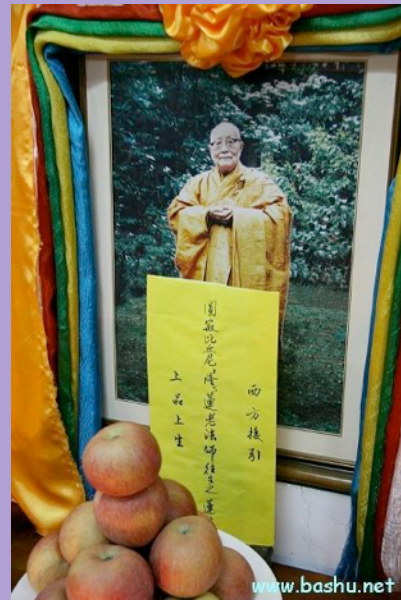 西方接引
圓寂比丘尼隆蓮老法師往生之蓮
上品上生
www.bashu.net